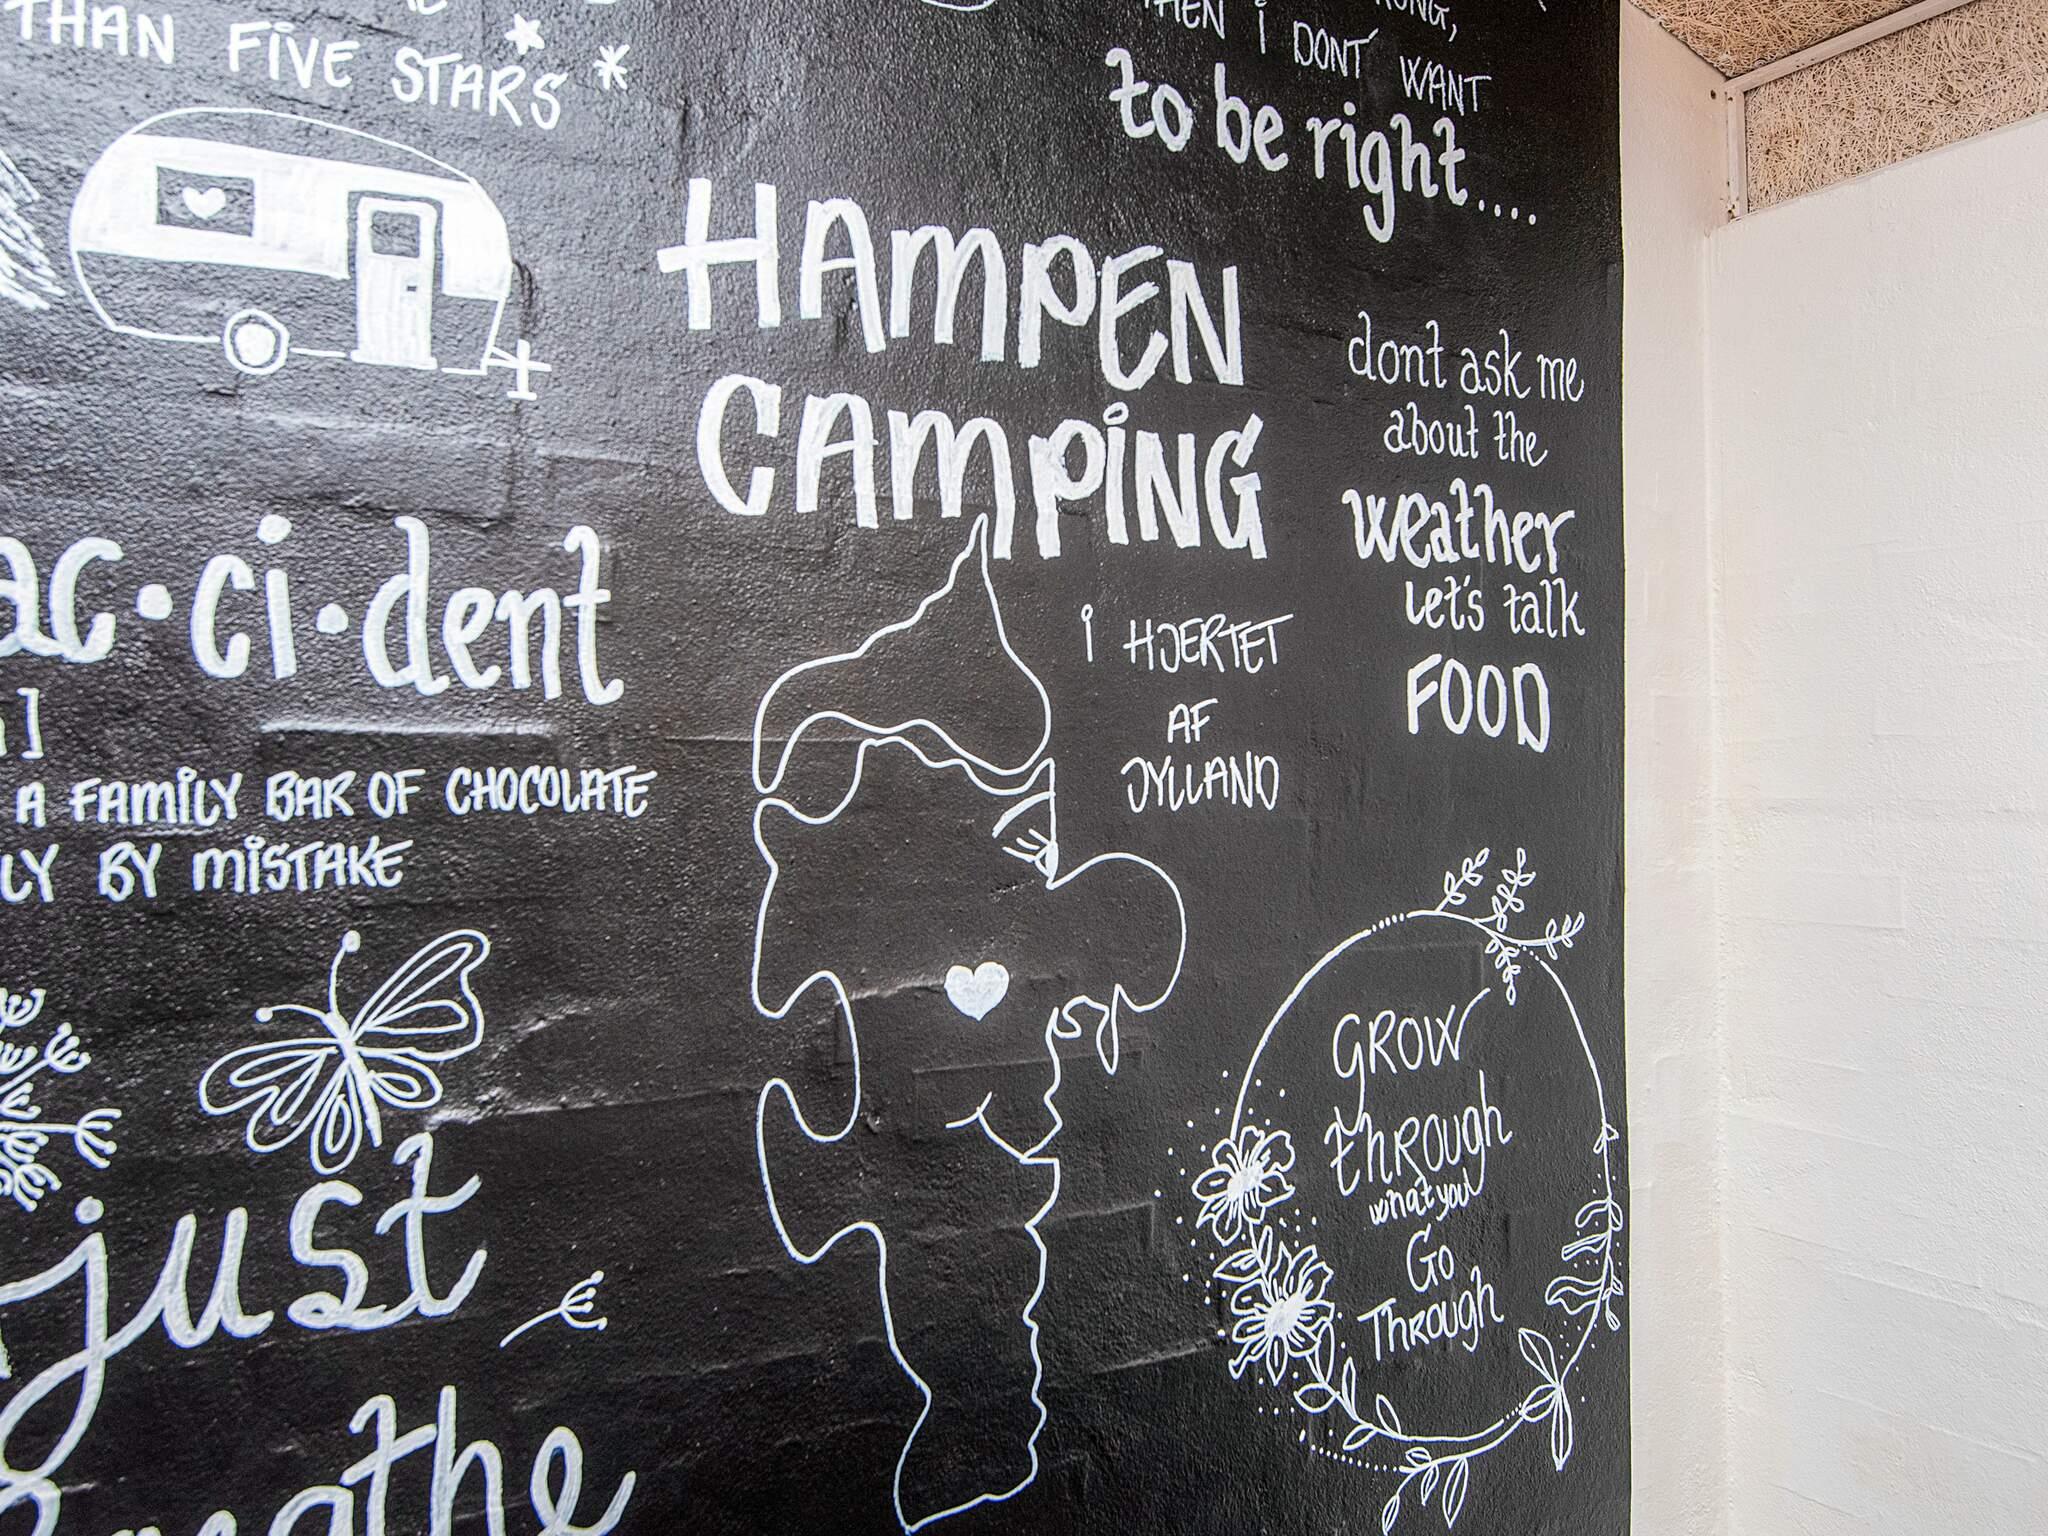 THAN FIVE STARS
THEN I DONT WANT
to be right....
HAMPEN
CAMPING
I HJERTET
AF
JYLLAND
dont ask me
about the
weather
Let's talk
FOOD
ac·ci·dent
A FAMILY BAR OF CHOCOLATE
LY BY MISTAKE
just
GROW
THROUGH
what you
Go
THROUGH